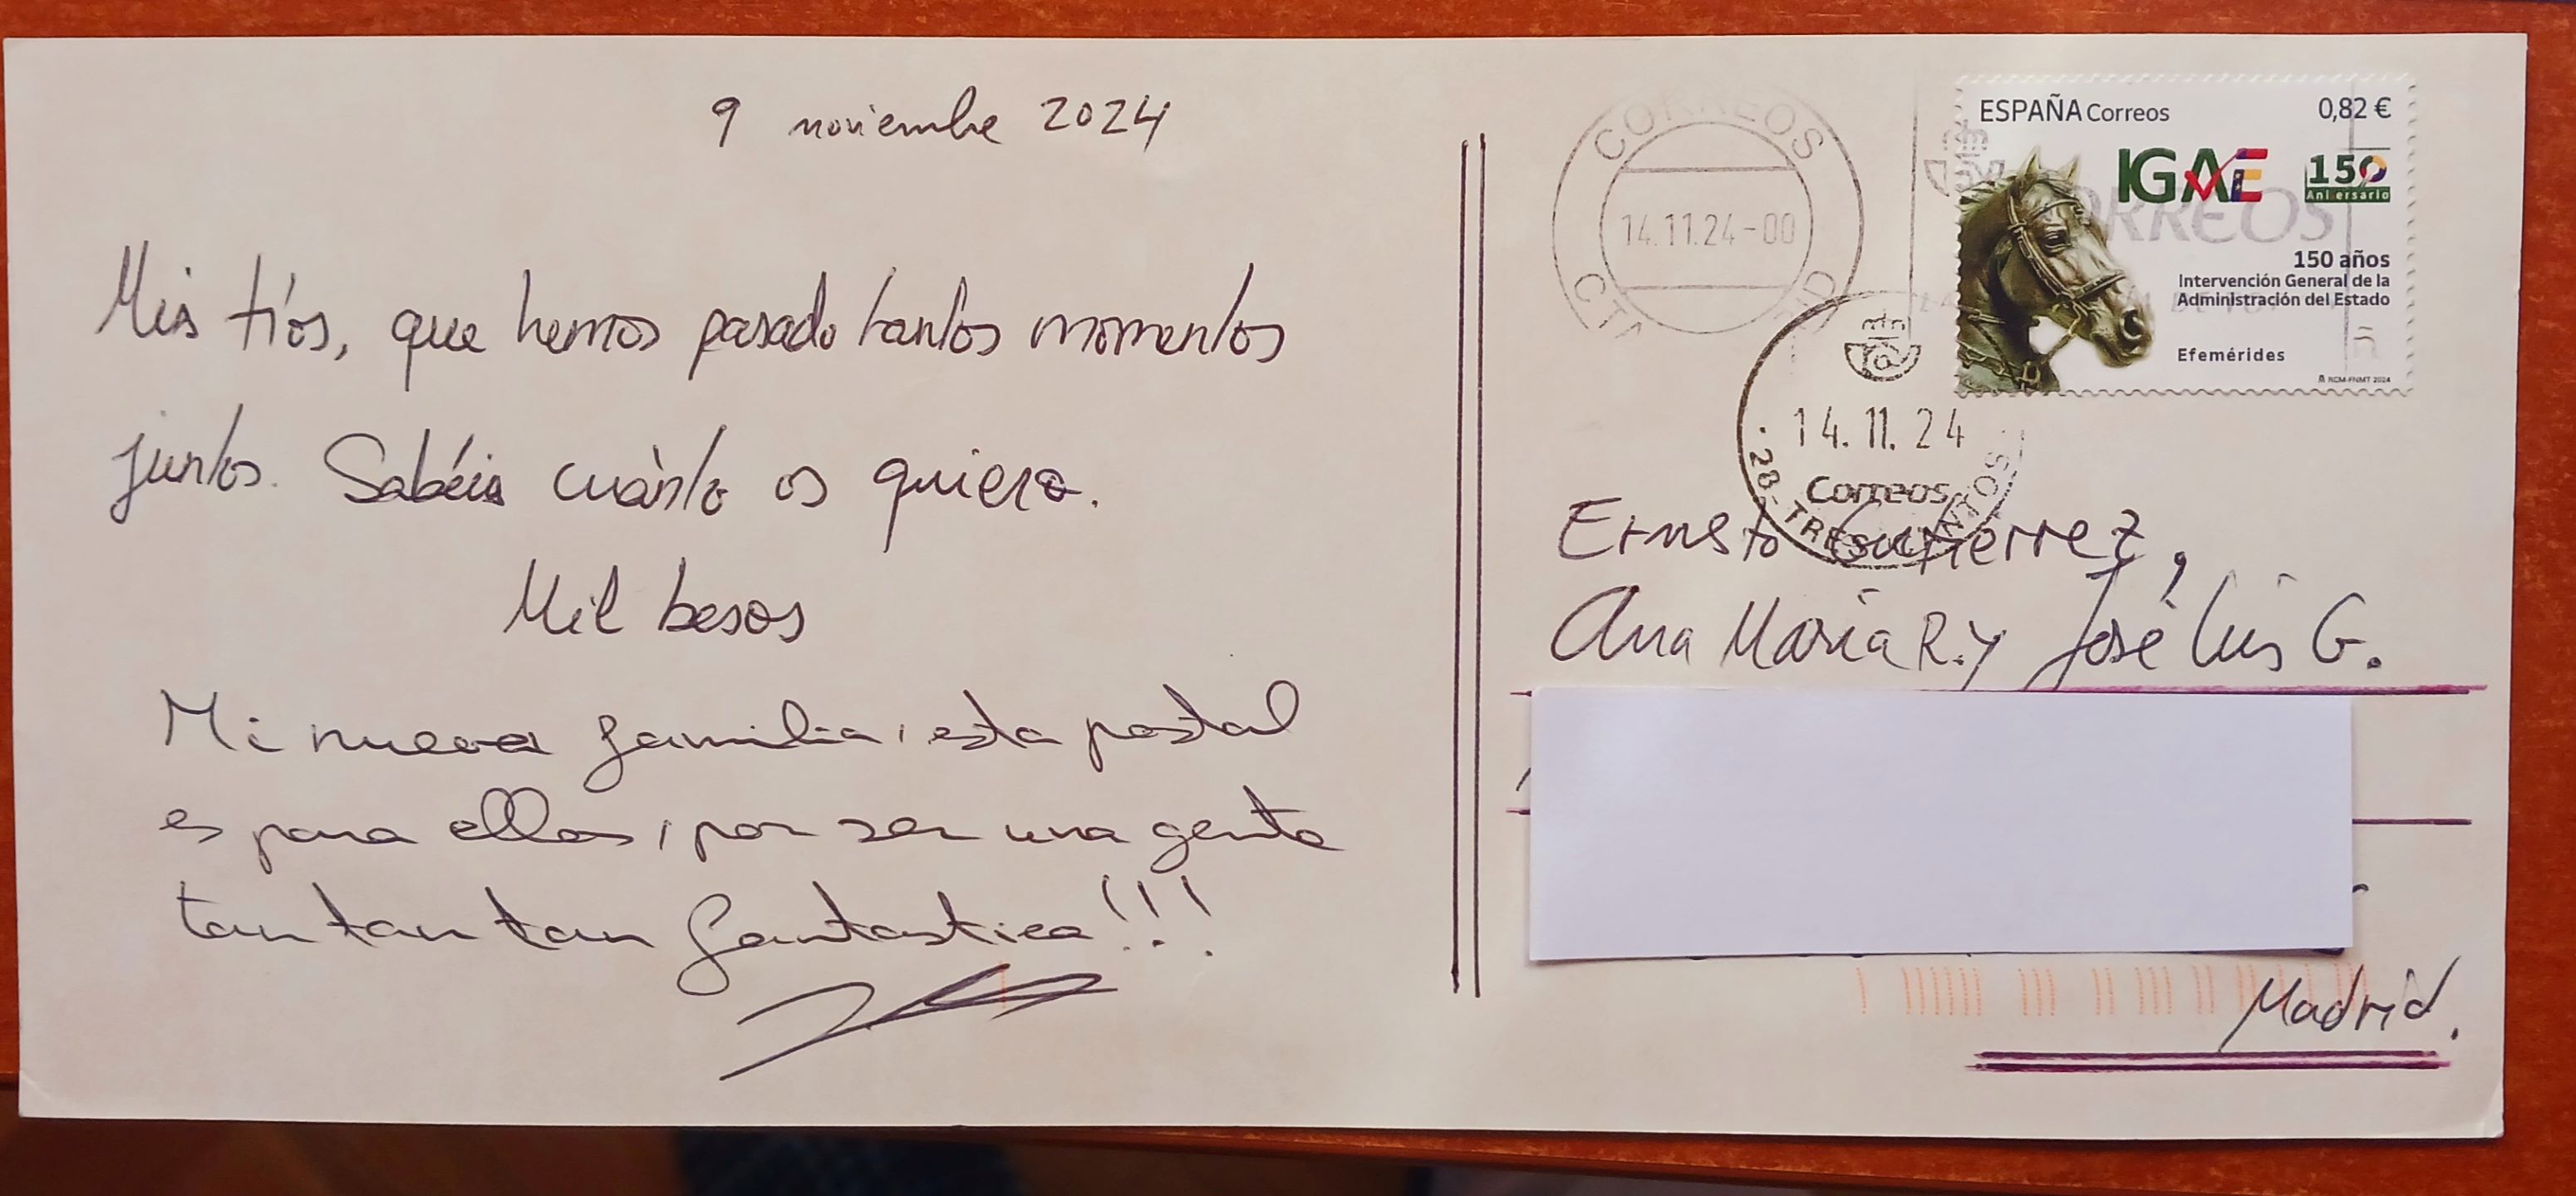 9 noviembre 2024
Mis tíos, que hemos pasado tantos momentos
juntos. Sabéis cuánto os quiero.
Mil besos
Mi nueva familia, esta postal
es para ellos, por ser una gente
tan tan tan fantastica!!!
CORREOS
14.11.24-00
CTA
CORREOS
ESPAÑA Correos
0,82 €
IGAE
150
Aniversario
150 años
Intervención General de la
Administración del Estado
Efemérides
RCM-FNMT 2024
14.11.24
Correos
28-TRES CANTOS
Ernesto Gutiérrez,
Ana María R. y José Luis G.
Madrid.